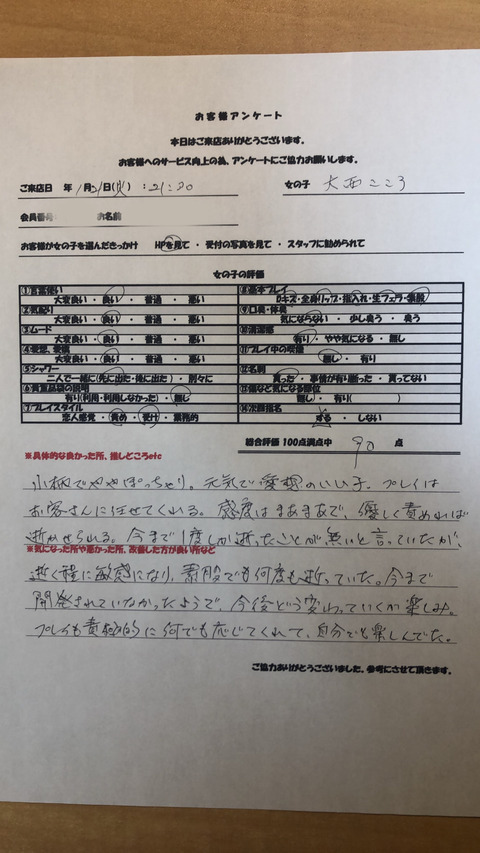 お客様アンケート
本日はご来店ありがとうございます。
お客様へのサービス向上の為、アンケートにご協力お願いします。
ご来店日 年 1月21日(火) :21:30 女の子 大西こころ
会員番号: お名前
お客様が女の子を選んだきっかけ HPを見て ・ 受付の写真を見て ・ スタッフに勧められて
女の子の評価
①言葉使い
大変良い ・ 良い ・ 普通 ・ 悪い
②気配り
大変良い ・ 良い ・ 普通 ・ 悪い
③ムード
大変良い ・ 良い ・ 普通 ・ 悪い
④愛想、愛嬌
大変良い ・ 良い ・ 普通 ・ 悪い
⑤シャワー
二人で一緒に(先に出た・後に出た) ・ 別々に
⑥貴重品袋の説明
有り(利用・利用しなかった) ・ 無し
⑦プレイスタイル
恋人感覚 ・ 責め ・ 受け ・ 業務的
⑧基本プレイ
Dキス・全身リップ・指入れ・生フェラ・素股
⑨口臭・体臭
気にならない ・ 少し臭う ・ 臭う
⑩清潔感
有り ・ やや気になる ・ 無し
⑪プレイ中の喫煙
無し ・ 有り
⑫名刺
貰った ・ 事情が有り断った ・ 貰ってない
⑬傷など気になる部位
無し ・ 有り( )
⑭次回指名
する ・ しない
総合評価 100点満点中 90 点
※具体的な良かった所、推しどころetc
小柄でややぽっちゃり。元気で愛想のいい子。プレイは
お客さんに任せてくれる。感度はまあまあで、優しく責めれば
逝かせられる。今まで1度しか逝ったことが無いと言っていたが、
※気になった所や悪かった所、改善した方が良い所など
逝く程に敏感になり、素股でも何度も逝っていた。今まで
開発されていなかったようで、今後どう変わっていくか楽しみ。
プレイも積極的に何でも応じてくれて、自分でも楽しんでた。
ご協力ありがとうございました、参考にさせて頂きます。